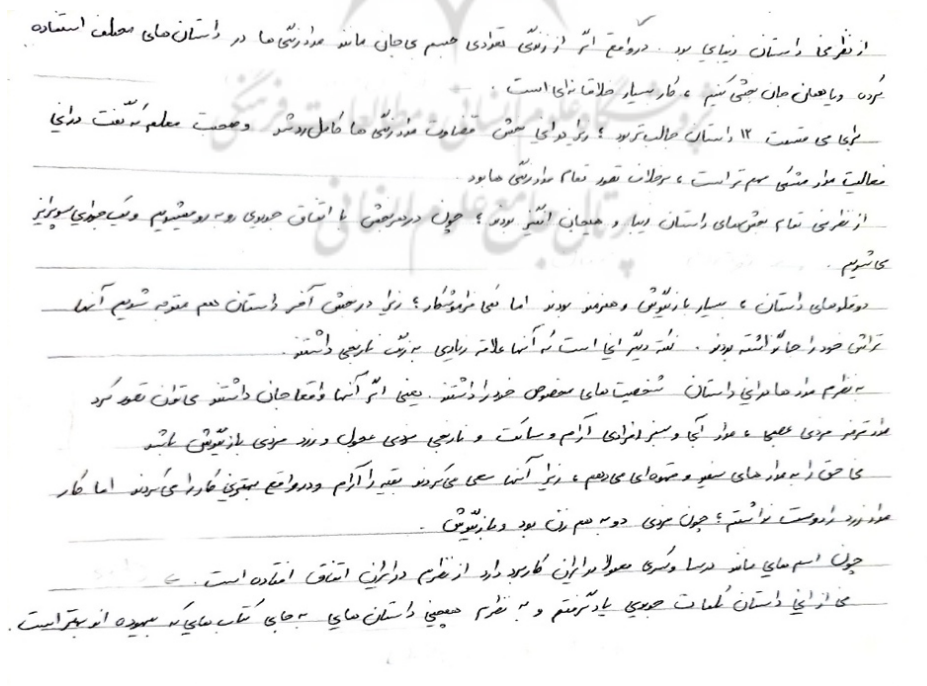 از نظر من داستان زیبایی بود. درواقع اگر از زندگی تعدادی جسم بی جان مانند مداد رنگی ها در داستان های مختلف استفاده
کرده و به همان جان بخشی کنیم، کار بسیار خلاقانه ای است.
برای من قسمت ۱۲ داستان جالب تر بود؛ زیرا در این بخش قضاوت مداد رنگی ها کامل رد شد و صحبت معلم که گفت در این
فعالیت مداد مشکی مهم تر است، برخلاف تصور تمام مداد رنگی ها بود.
از نظر من تمام بخش های داستان زیبا و هیجان انگیز بودند؛ چون در هر بخش با اتفاق جدیدی رو به رو میشدیم و یک جورایی سوپرایز
می شدیم.
دوقلوهای داستان، بسیار بازیگوش و هنرمند بودند اما کمی فراموشکار؛ زیرا در بخش آخر داستان هم متوجه شدیم آنها
تراش خود را جا گذاشته بودند. نکته دیگر این است که آنها علاقه زیادی به رنگ نارنجی داشتند.
به نظرم مداد ها در این داستان شخصیت های مخصوص خود را داشتند. یعنی اگر آنها واقعا جان داشتند می توان تصور کرد
مداد قرمز مردی عصبی، مداد آبی و سبز افرادی آرام و ساکت و نارنجی مردی عجول و زرد مردی بازیگوش باشد
من حق را به مداد های سفید و قهوه ای می دهم، زیرا آنها سعی می کردند بقیه را آرام و در واقع بهترین کار را می کردند اما کار
مداد زرد را دوست نداشتم؛ چون مردی دو به هم زن بود و بازیگوش.
چون اسم هایی مانند درسا و کسری معمولا در ایران کاربرد دارد از نظرم در ایران اتفاق افتاده است.
من از این داستان کلمات جدیدی یاد گرفتم و به نظرم همچین داستان هایی به جای کتاب هایی که بیهوده اند بهتر است.
پژوهشگاه علوم انسانی و مطالعات فرهنگی
پرتال جامع علوم انسانی